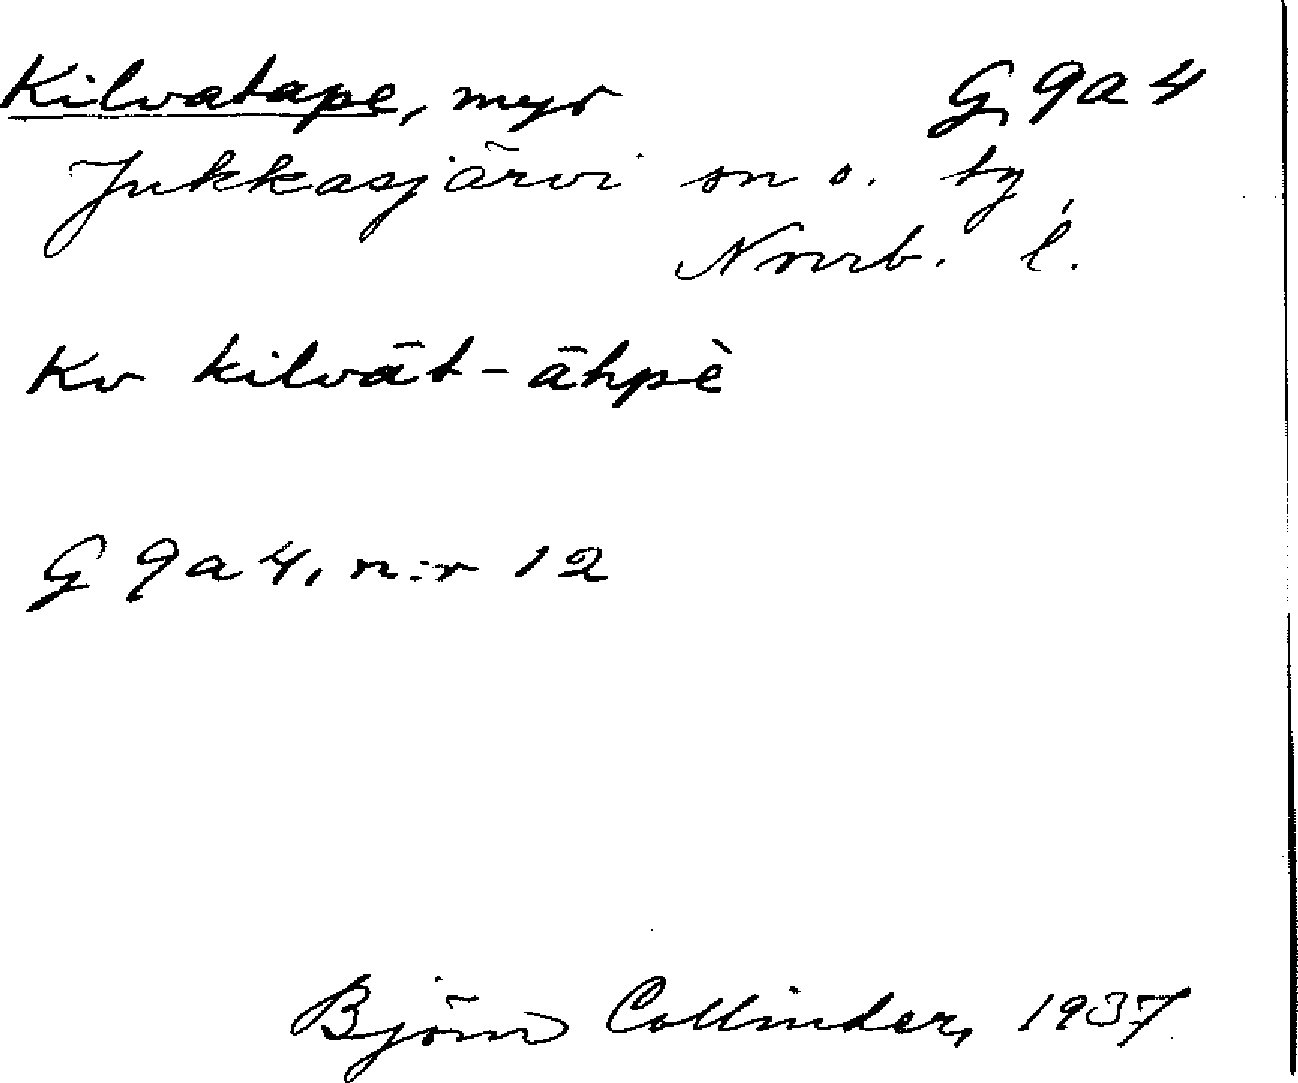 Kilvatape, myr G 9a 4
Jukkasjärvi sn o. tg,
Norrb. l.
Kv kilvāt-āhpè
G 9a4, n:r 12
Björn Collinder, 1937